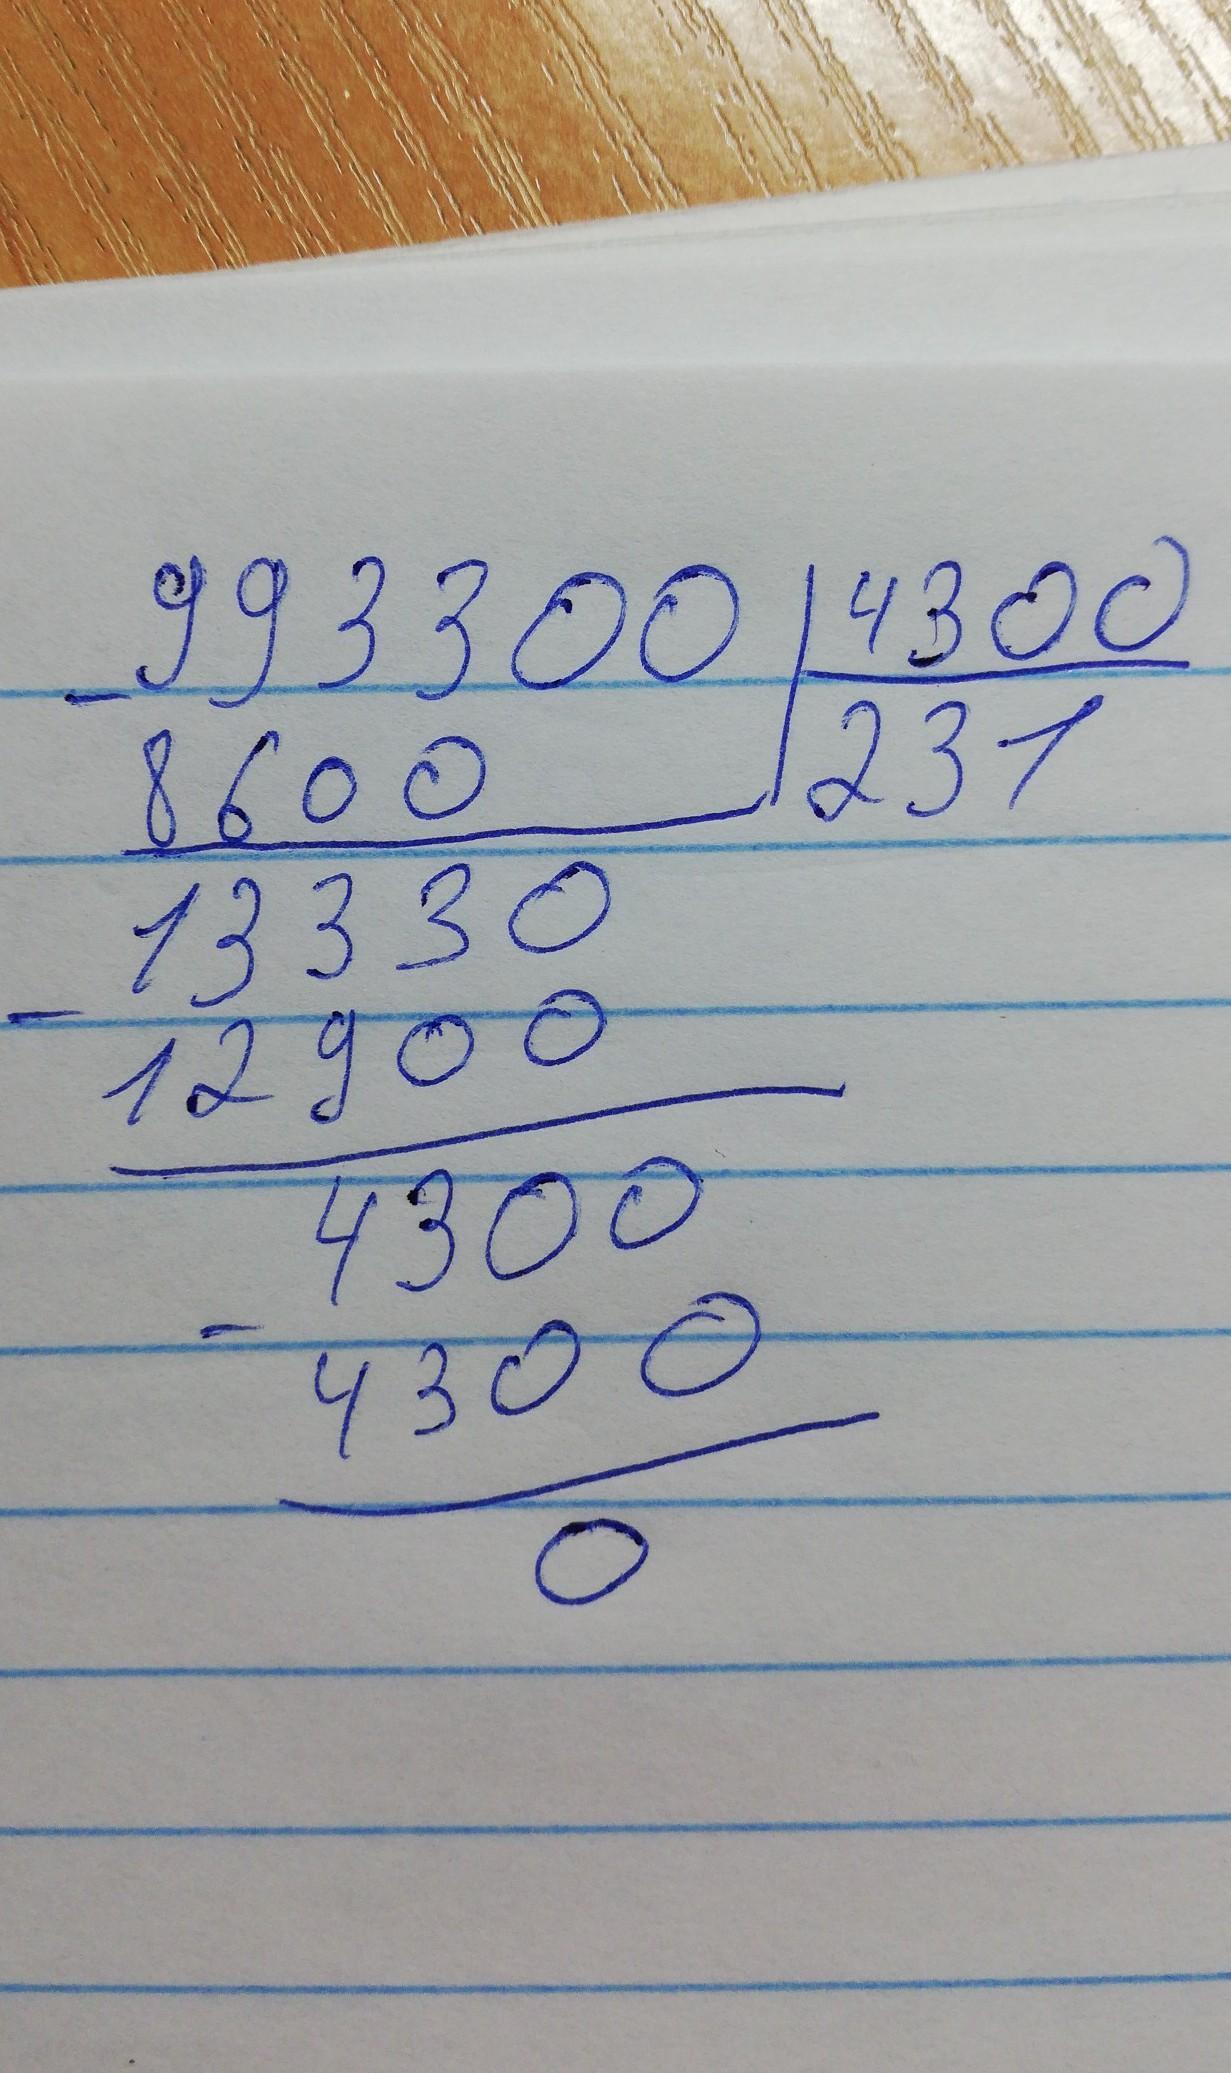 993300 4300
- 8600 231
13330
- 12900
4300
- 4300
0